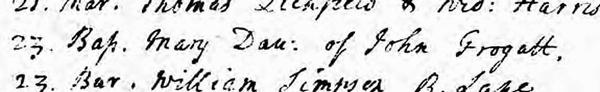 21. Mar. Thomas Lichfield & Wid: Harris
23. Bap. Mary Dau: of John Frogatt.
23. Bur. William Simpson B. Lane